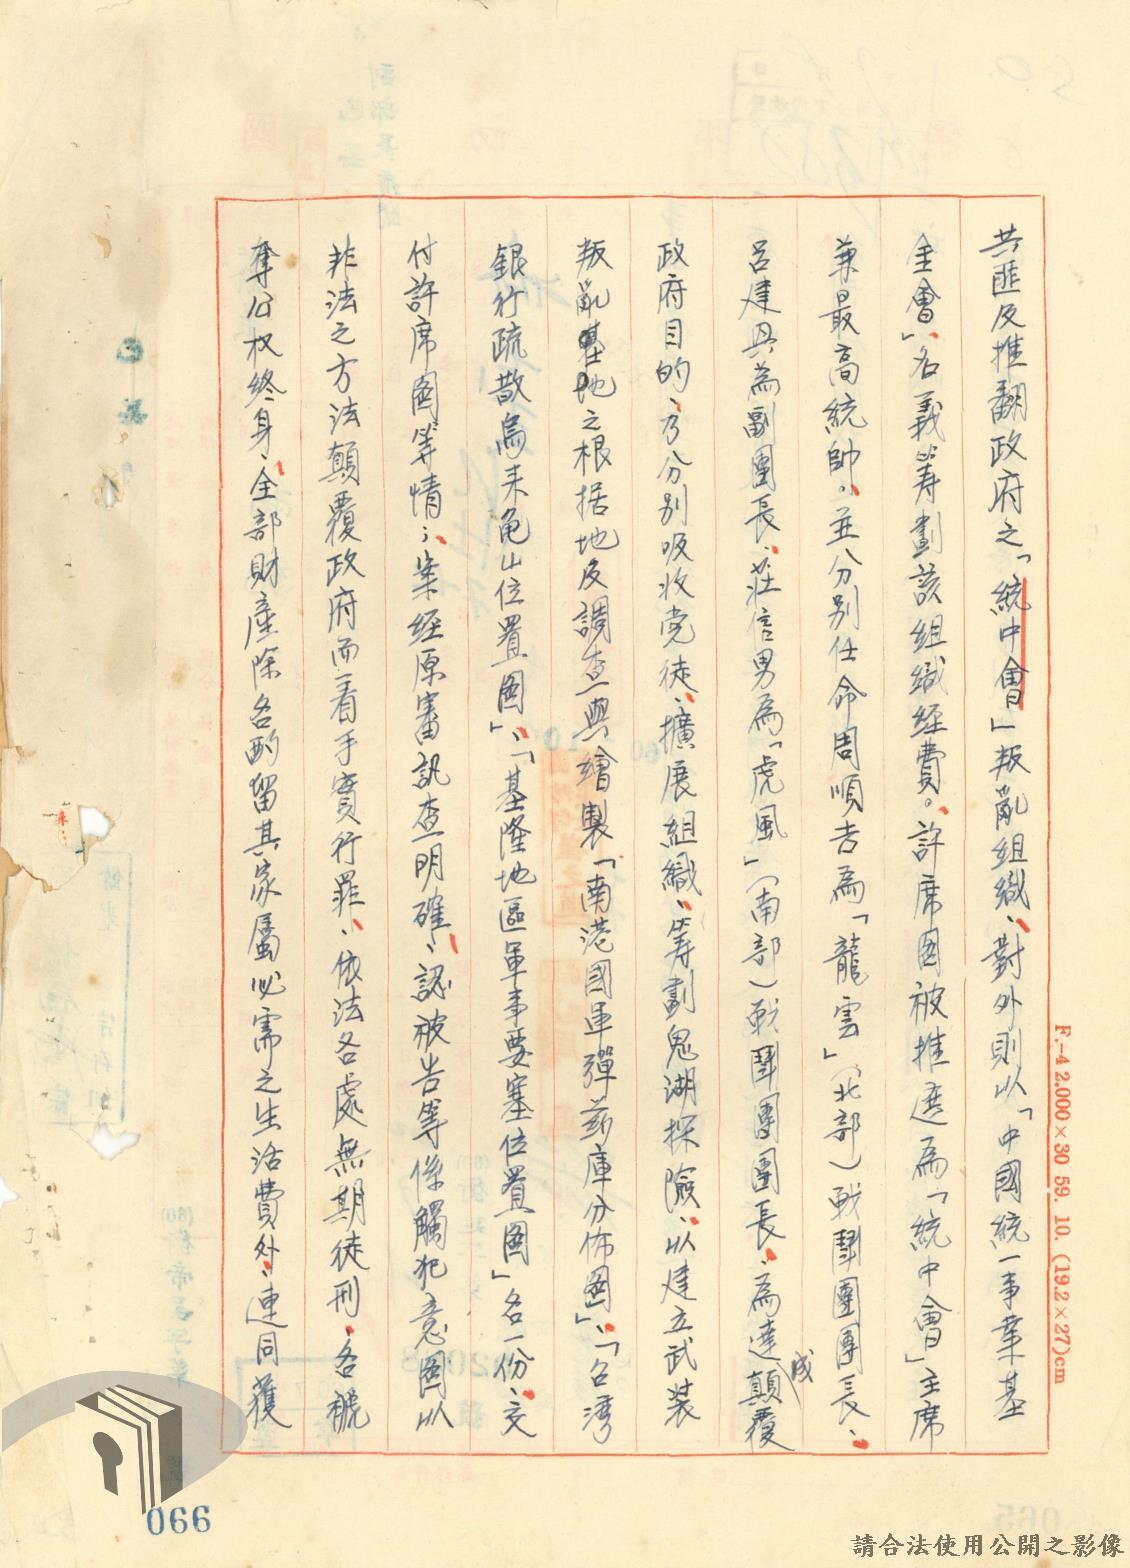 共匪及推翻政府之「統中會」叛亂組織、對外則以「中國統一事業基
金會」名義籌劃該組織經費。許席圖被推選為「統中會」主席
兼最高統帥。並分別任命周順吉為「龍雲」(北部)戰鬪團團長、
呂建興為副團長、莊信男為「虎風」(南部)戰鬪團團長、為達成顛覆
政府目的、乃分別吸收党徒、擴展組織、筹劃鬼湖探險、以建立武装
叛亂基地之根据地及調查與繪製「南港國軍彈葯庫分佈圖」、「台湾
銀行疏散烏来龟山位置圖」、「基隆地區軍事要塞位置圖」各一份、交
付許席圖等情；案經原審訊查明確、認被告等係觸犯意圖以
非法之方法顛覆政府而着手實行罪、依法各處無期徒刑、各褫
奪公权終身、全部財產除各酌留其家屬必需之生活費外、連同獲
F.-4 2.000×30 59. 10. (19.2×27)cm
066
請合法使用公開之影像